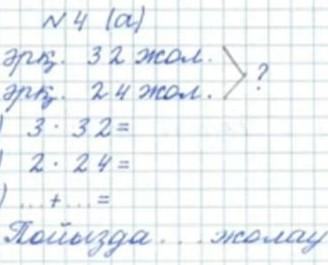 № 4 (а)
әрқ. 32 жол.
әрқ. 24 жол. ?
) 3 · 32 =
) 2 · 24 =
) ... + ... =
Пойызда ... жолау